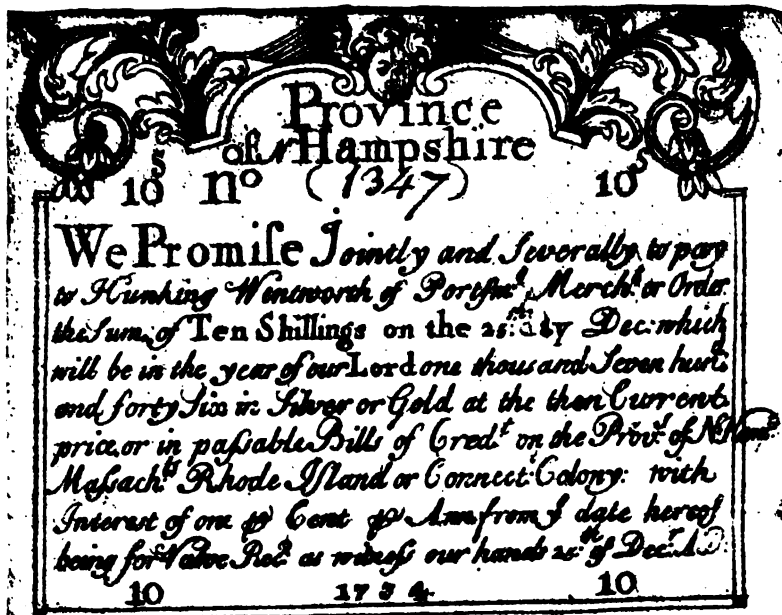 Province
of N Hampshire
10s no (1347) 10s
We Promiſe Jointly and ſeverally to pay
to Hunking Wentworth of Portſmo. Mercht. or Order
the Sum of Ten Shillings on the 25th. day Decr: which
will be in the year of our Lord one thouſand Seven hundd
and forty Six in Silver or Gold at the then Current
price, or in paſsable Bills of Credt. on the Provce. of N. Hampr
Maſsachts. Rhode Iſland or Connectt. Colony: with
Intereſt of one ⅌ Cent ⅌ Ann from ye date hereof
being for Value Recd. as witneſs our hands 25th of Decr. A D:
10 1734 10